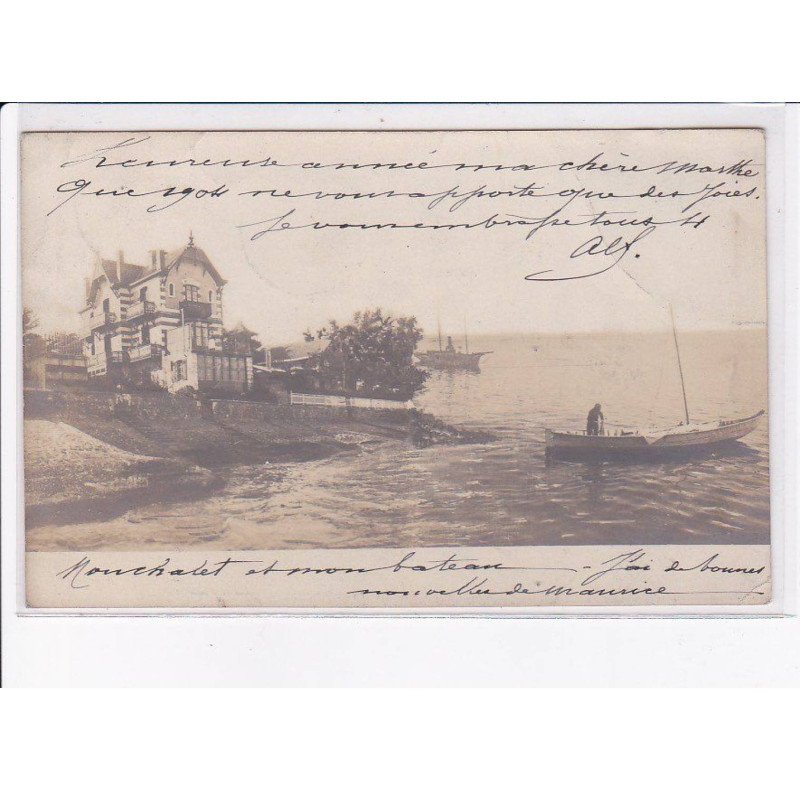 Heureuse année ma chère Marthe
Que 1904 ne vous apporte que des Joies.
Je vous embrasse tous 4
Alf.
Mon chalet et mon bateau — J'ai de bonnes
nouvelles de Maurice